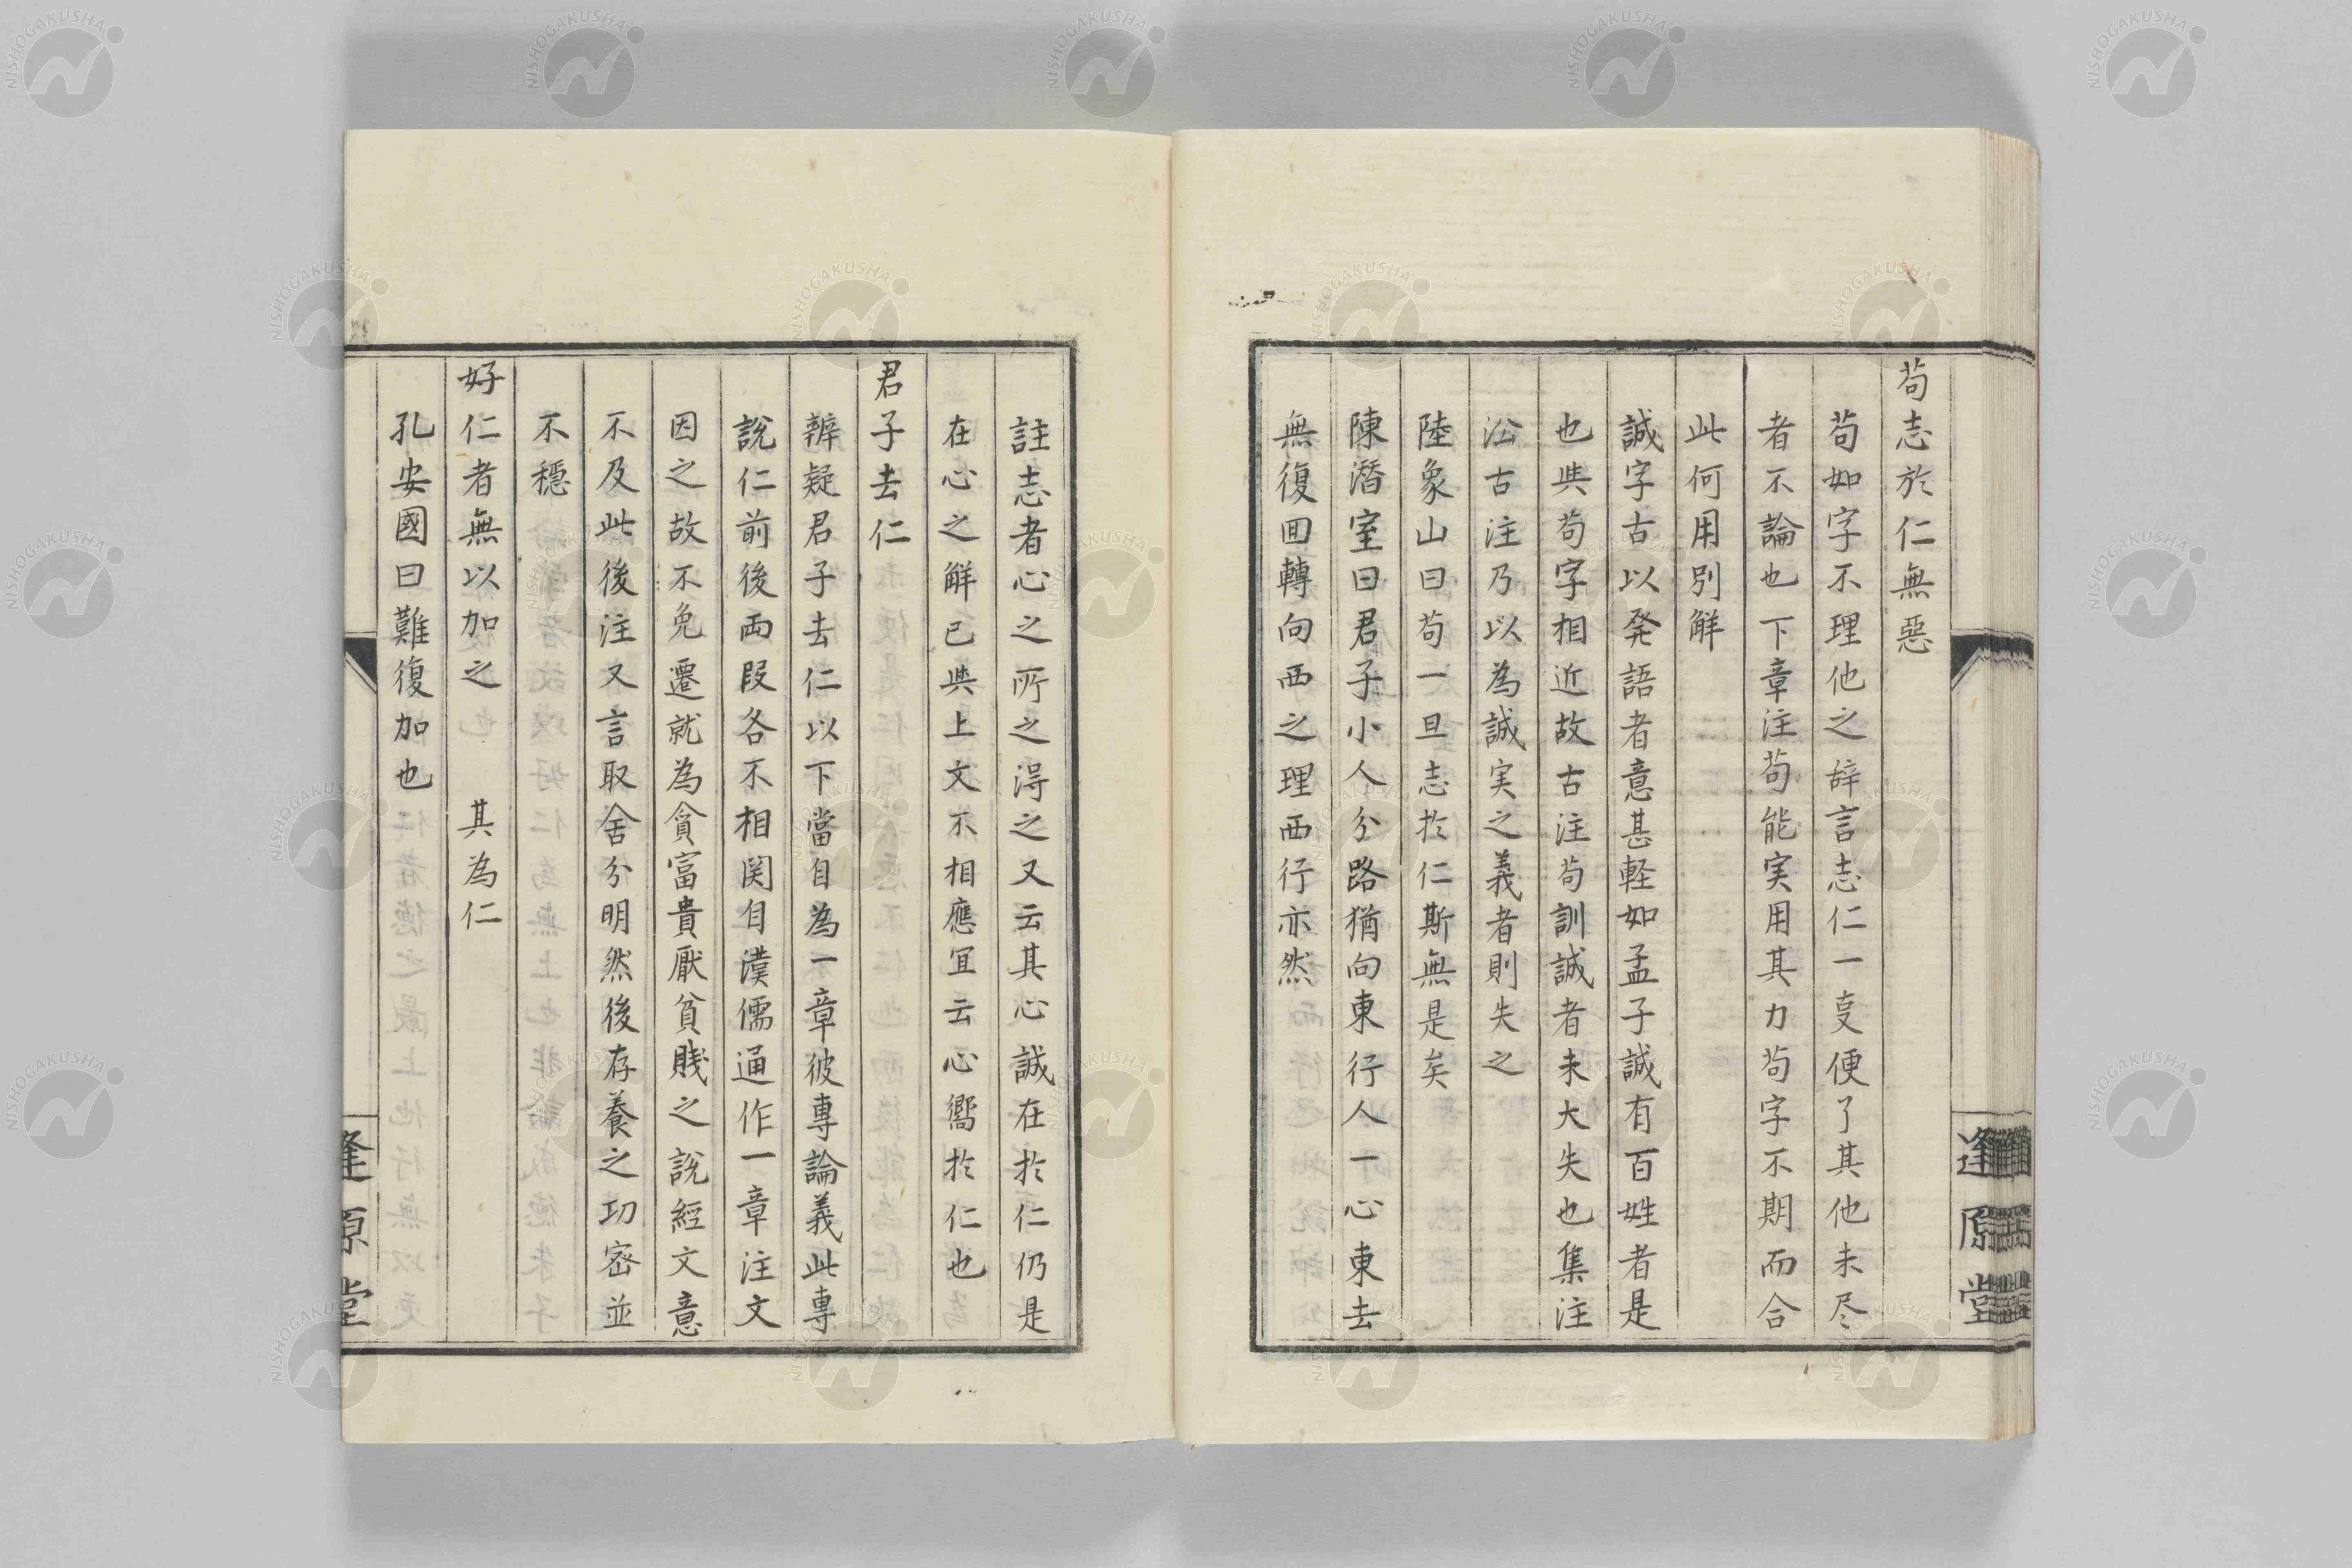 苟志於仁無惡
苟如字不理他之辞言志仁一叓便了其他未尽
者不論也下章注苟能実用其力苟字不期而合
此何用別解
誠字古以発語者意甚軽如孟子誠有百姓者是
也与苟字相近故古注苟訓誠者未大失也集注
㳂古注乃以為誠実之義者則失之
陸象山曰苟一旦志於仁斯無是矣
陳潛室曰君子小人分路猶向東行人一心東去
無復囬轉向西之理西行亦然
逢原堂
註志者心之所之淂之又云其心誠在於仁仍是
在心之解已与上文不相應宜云心嚮於仁也
君子去仁
辨疑君子去仁以下當自為一章彼專論義此專
說仁前後両段各不相関自漢儒通作一章注文
因之故不免遷就為貪富貴厭貧賎之說經文意
不及此後注又言取舍分明然後存養之功密並
不穩
好仁者無以加之 其為仁
孔安國曰難復加也
逢原堂
NISHOGAKUSHA